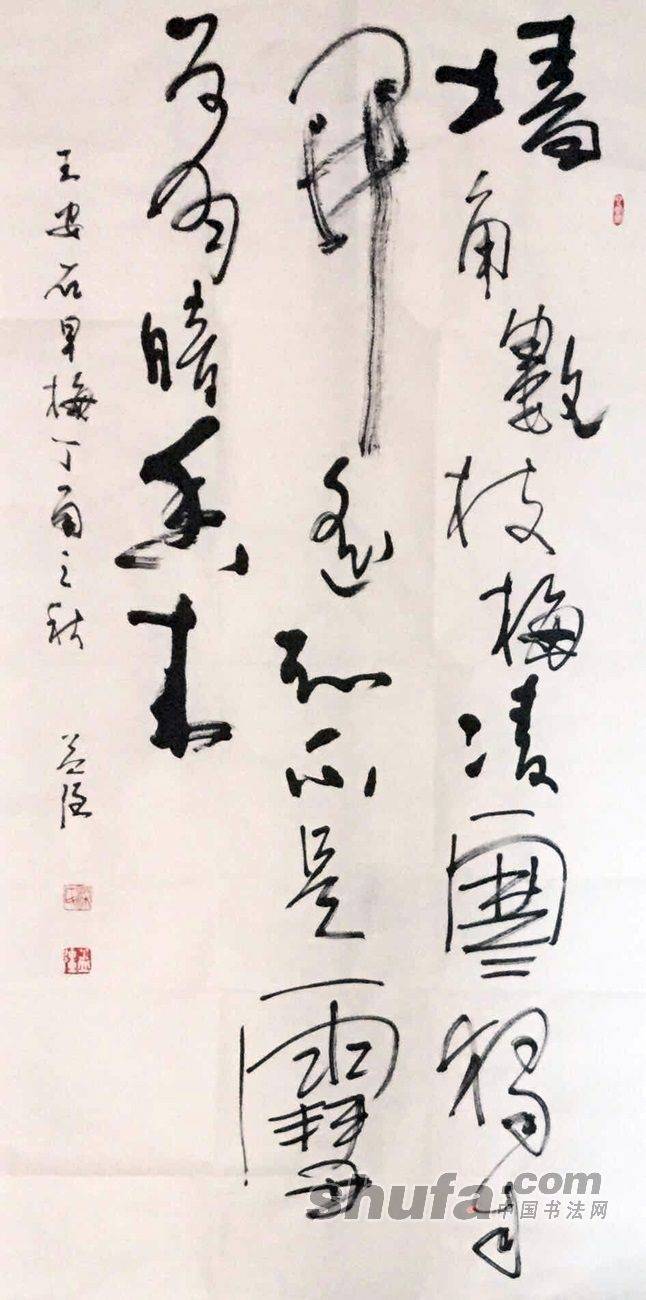 墙角數枝梅凌寒獨自
開遥知不是雪
为有暗香来
王安石早梅丁酉之秋 益
shufa.com
中国书法网